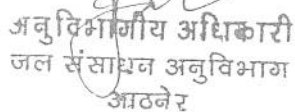 अनुविभागीय अधिकारी
जल संसाधन अनुविभाग
आठनेर